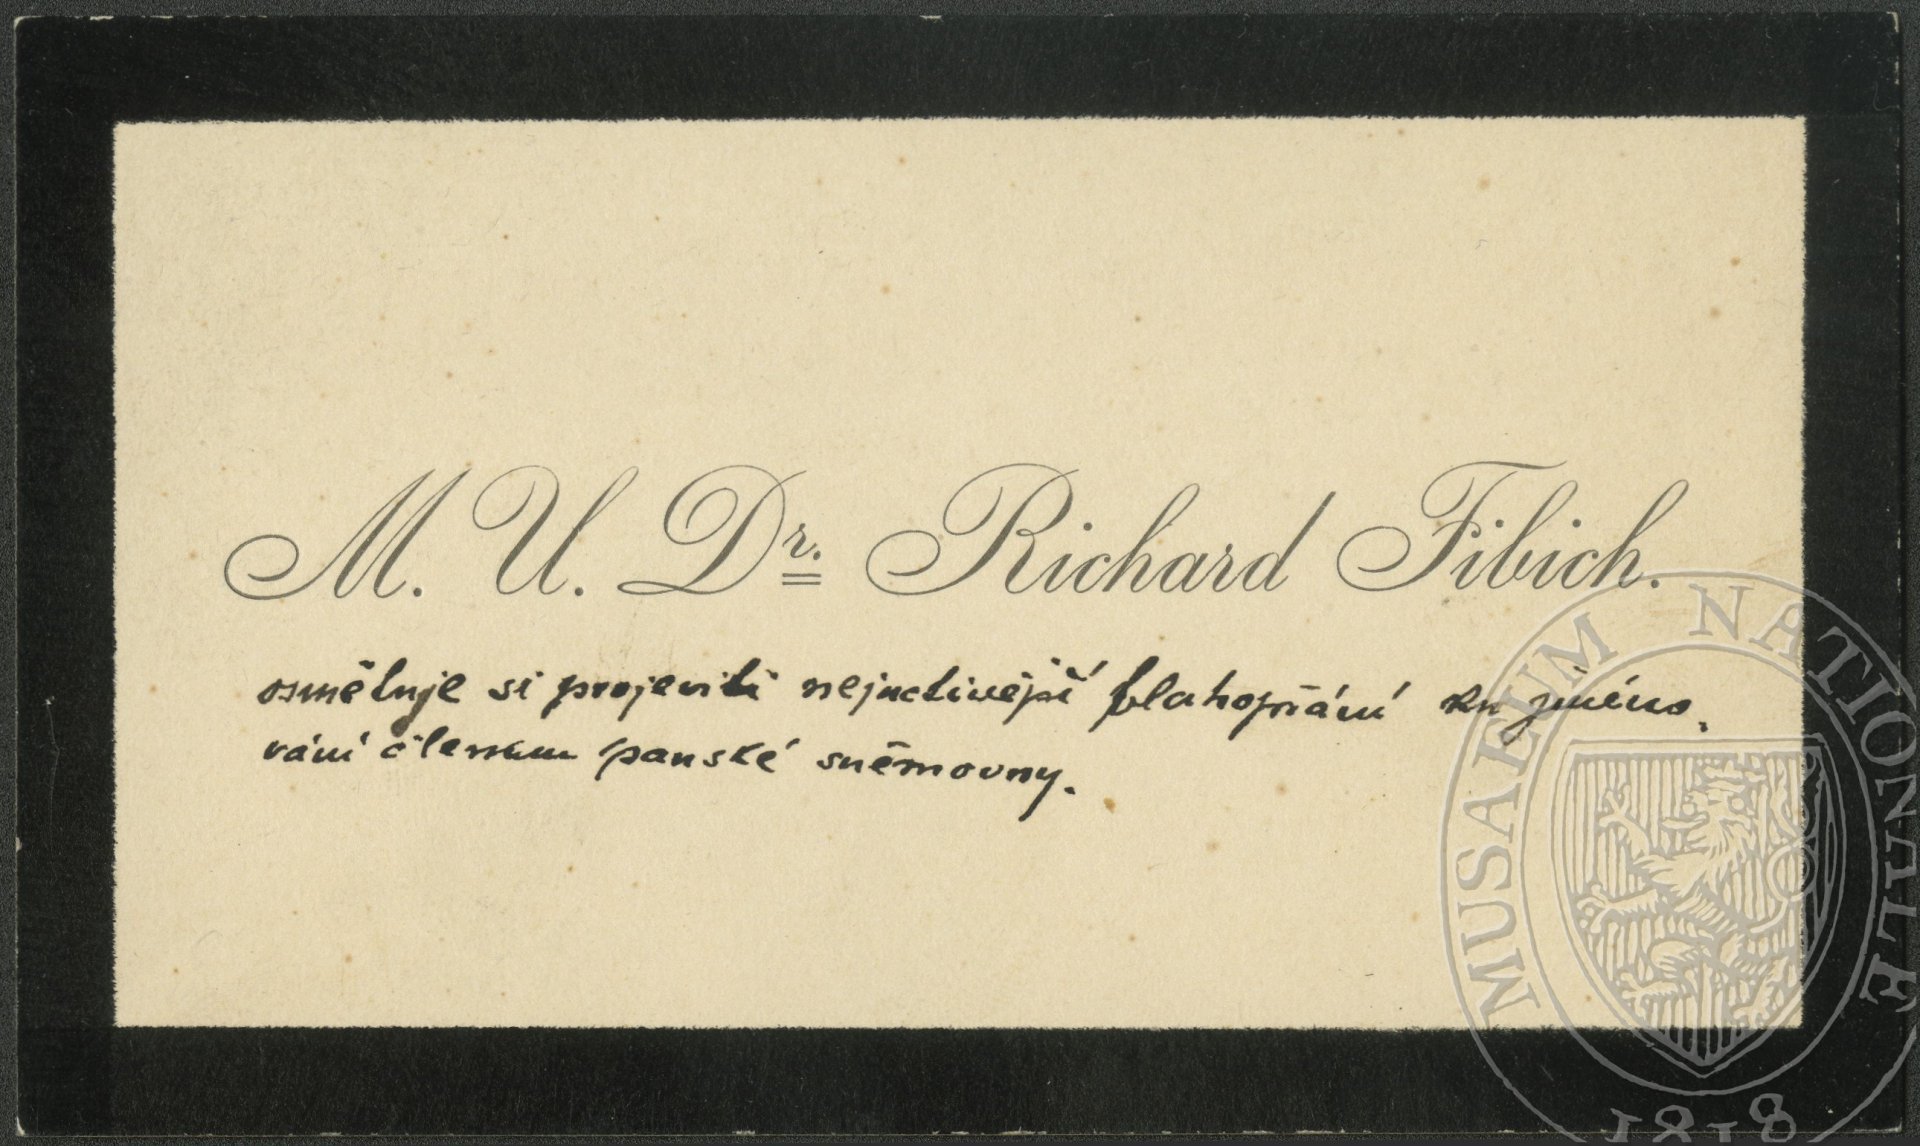 M. U. Dr. Richard Fibich.
osměluje si projeviti nejuctivější blahopřání ku jmeno-
vání členem panské sněmovny.
MUSAEUM NATIONALE
1818